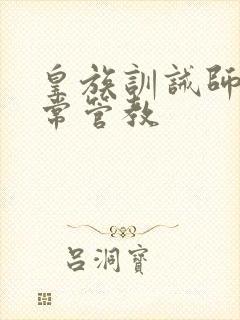 皇族訓誡師
常管教
呂洞寶